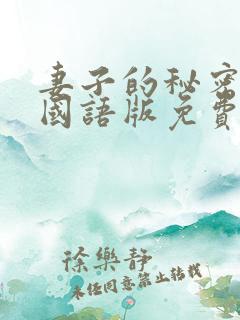 妻子的秘密
國語版免費
徐樂靜
未經同意禁止轉載